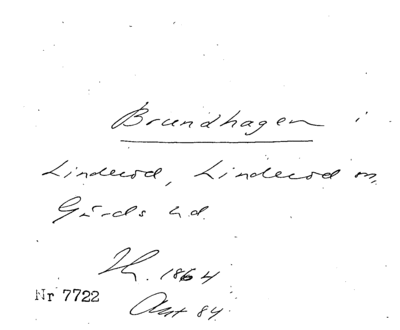 Brundhagen i
Linderöd, Linderöd sn,
Gärds hd.
Th. 1864
Nr 7722
Akt 84